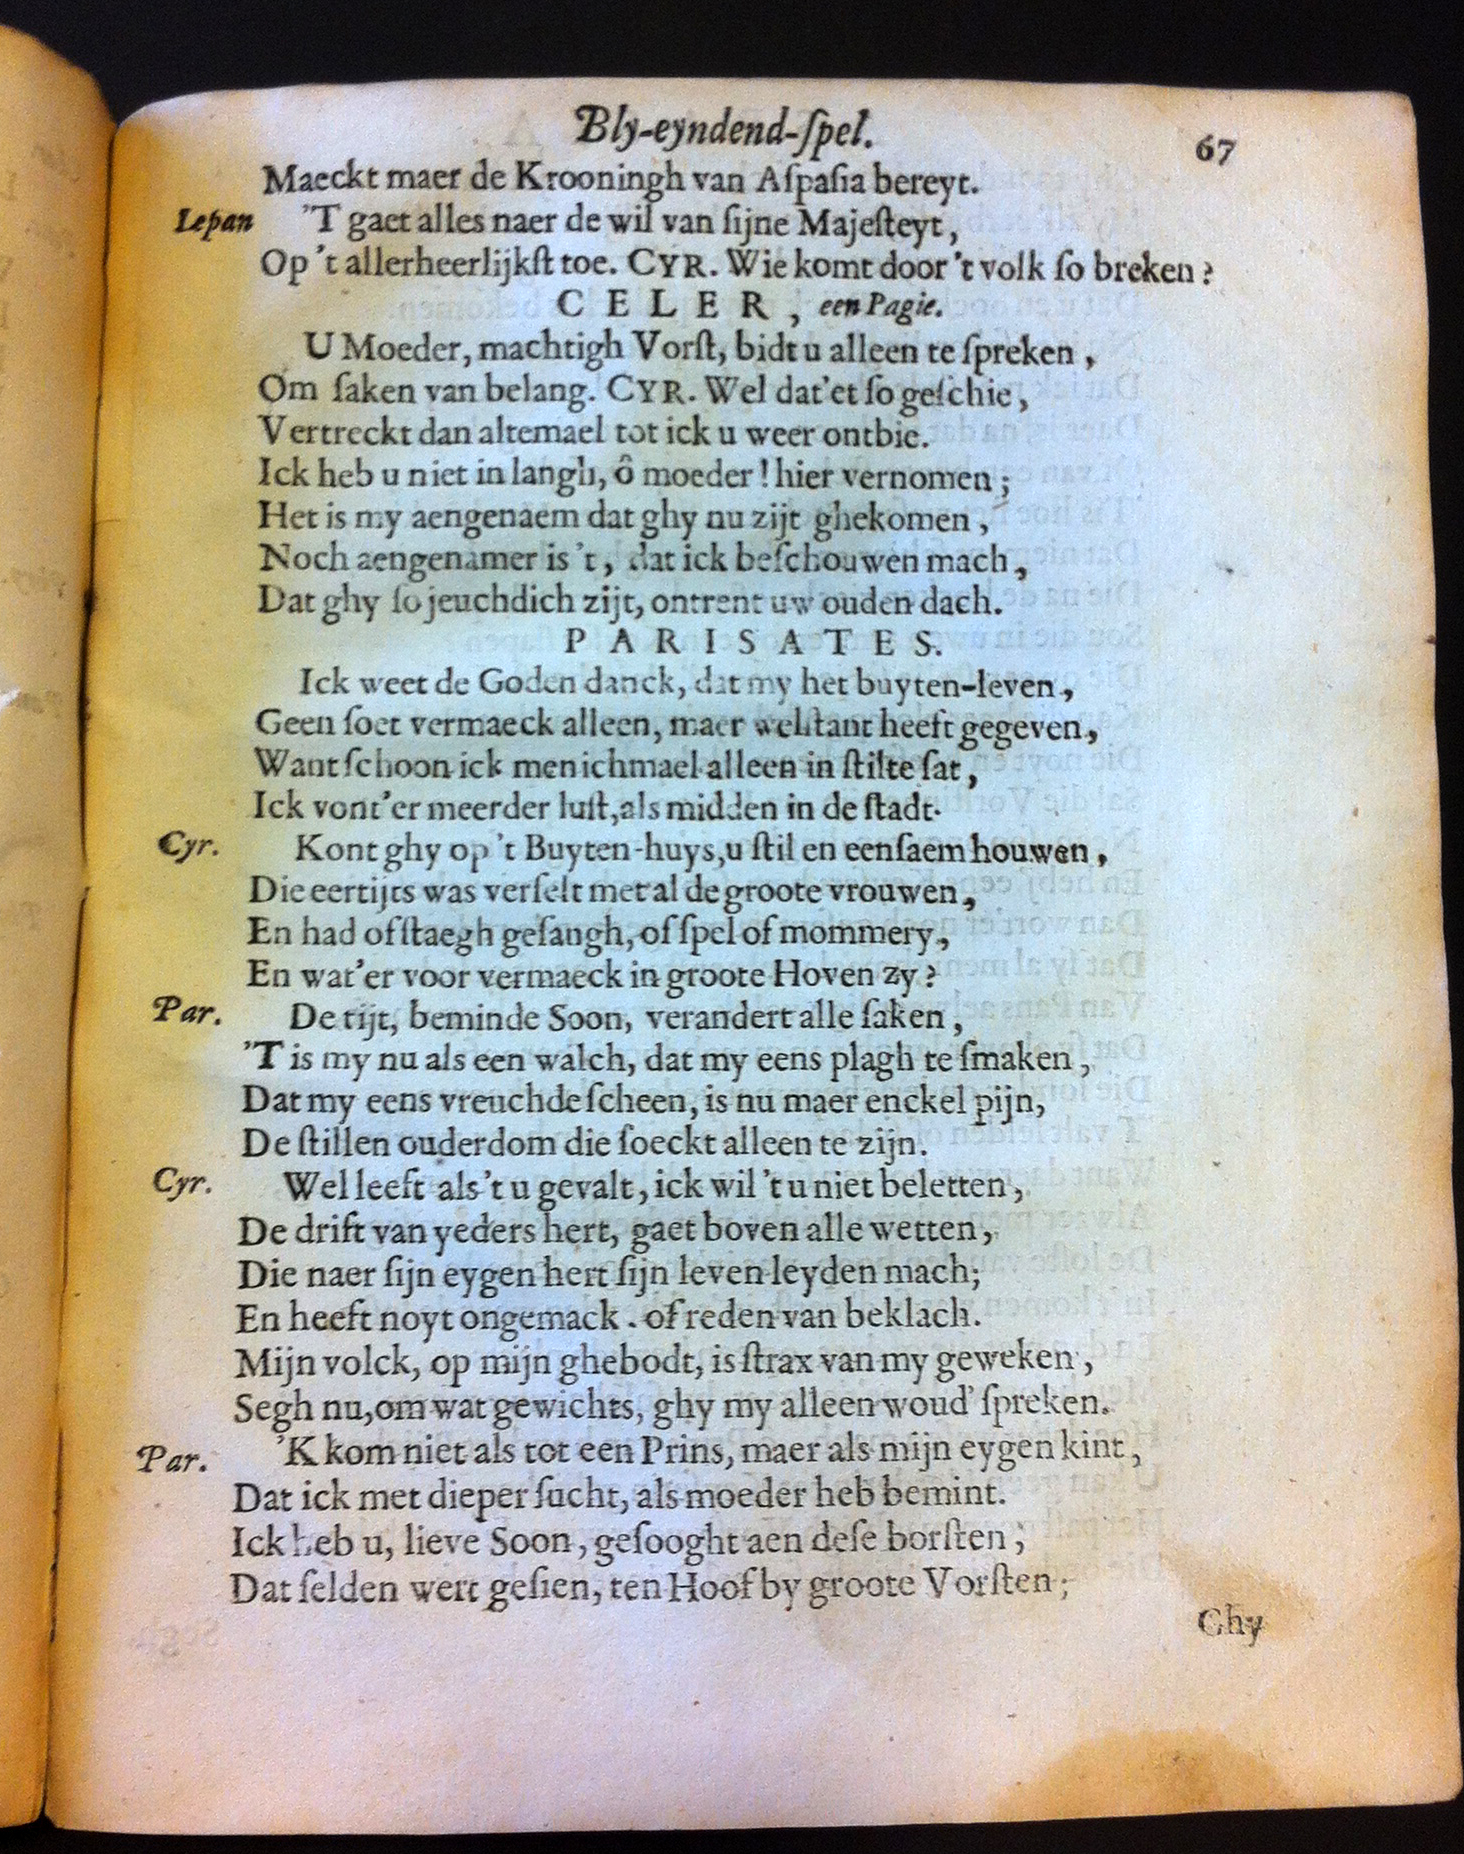 Bly-eyndend-ſpel. 67
Maeckt maer de Krooningh van Aſpaſia bereyt.
Lepan 'T gaet alles naer de wil van ſijne Majeſteyt,
Op 't allerheerlijkſt toe. CYR. Wie komt door 't volk ſo breken?
CELER, een Pagie.
U Moeder, machtigh Vorſt, bidt u alleen te ſpreken,
Om ſaken van belang. CYR. Wel dat'et ſo geſchie,
Vertreckt dan altemael tot ick u weer ontbie.
Ick heb u niet in langh, ô moeder! hier vernomen;
Het is my aengenaem dat ghy nu zijt ghekomen,
Noch aengenamer is 't, dat ick beſchouwen mach,
Dat ghy ſo jeuchdich zijt, ontrent uw ouden dach.
PARISATES.
Ick weet de Goden danck, dat my het buyten-leven,
Geen ſoet vermaeck alleen, maer welſtant heeft gegeven,
Want ſchoon ick menichmael alleen in ſtilte ſat,
Ick vont'er meerder luſt, als midden in de ſtadt.
Cyr. Kont ghy op 't Buyten-huys, u ſtil en eenſaem houwen,
Die eertijts was verſelt met al de groote vrouwen,
En had of ſtaegh geſangh, of ſpel of mommery,
En wat'er voor vermaeck in groote Hoven zy?
Par. De tijt, beminde Soon, verandert alle ſaken,
'T is my nu als een walch, dat my eens plagh te ſmaken,
Dat my eens vreuchde ſcheen, is nu maer enckel pijn,
De ſtillen ouderdom die ſoeckt alleen te zijn.
Cyr. Wel leeft als 't u gevalt, ick wil 't u niet beletten,
De drift van yeders hert, gaet boven alle wetten,
Die naer ſijn eygen hert ſijn leven leyden mach;
En heeft noyt ongemack. of reden van beklach.
Mijn volck, op mijn ghebodt, is ſtrax van my geweken,
Segh nu, om wat gewichts, ghy my alleen woud' ſpreken.
Par. 'K kom niet als tot een Prins, maer als mijn eygen kint,
Dat ick met dieper ſucht, als moeder heb bemint.
Ick heb u, lieve Soon, geſooght aen deſe borſten;
Dat ſelden wert geſien, ten Hoof by groote Vorſten;
Ghy